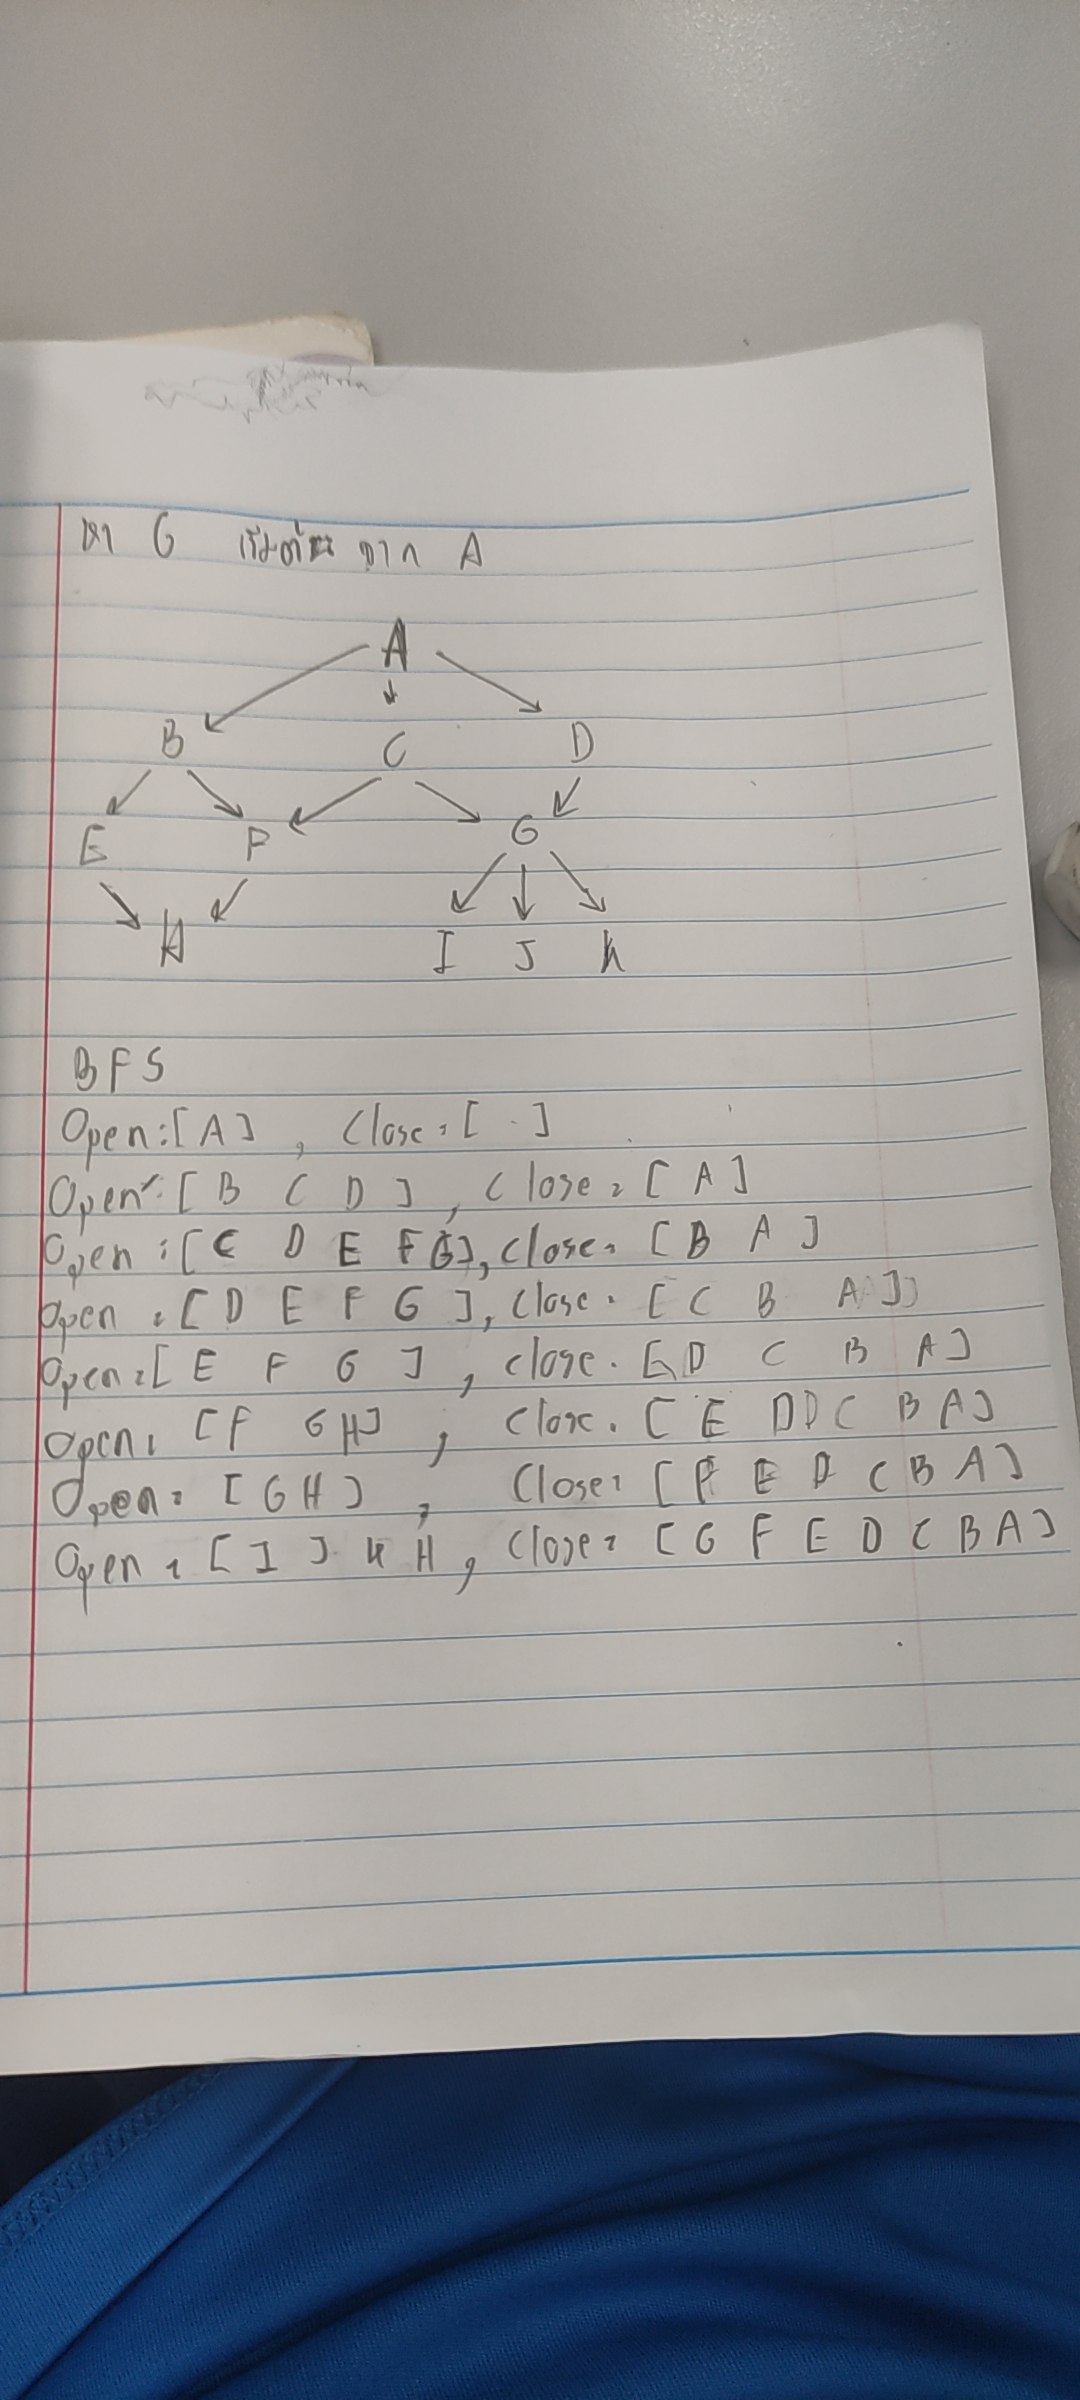 หา G เริ่มต้น จาก A
A
B C D
E F G
H I J K
BFS
Open: [A] , Close: [ ]
Open: [ B C D ] , Close: [ A ]
Open: [ C D E F G ], Close: [ B A ]
Open: [ D E F G ], Close: [ C B A ]
Open: [ E F G ] , Close: [ D C B A ]
Open: [ F G H ] , Close: [ E D D C B A ]
Open: [ G H ] , Close: [ F E D C B A ]
Open: [ I J K H , Close: [ G F E D C B A ]